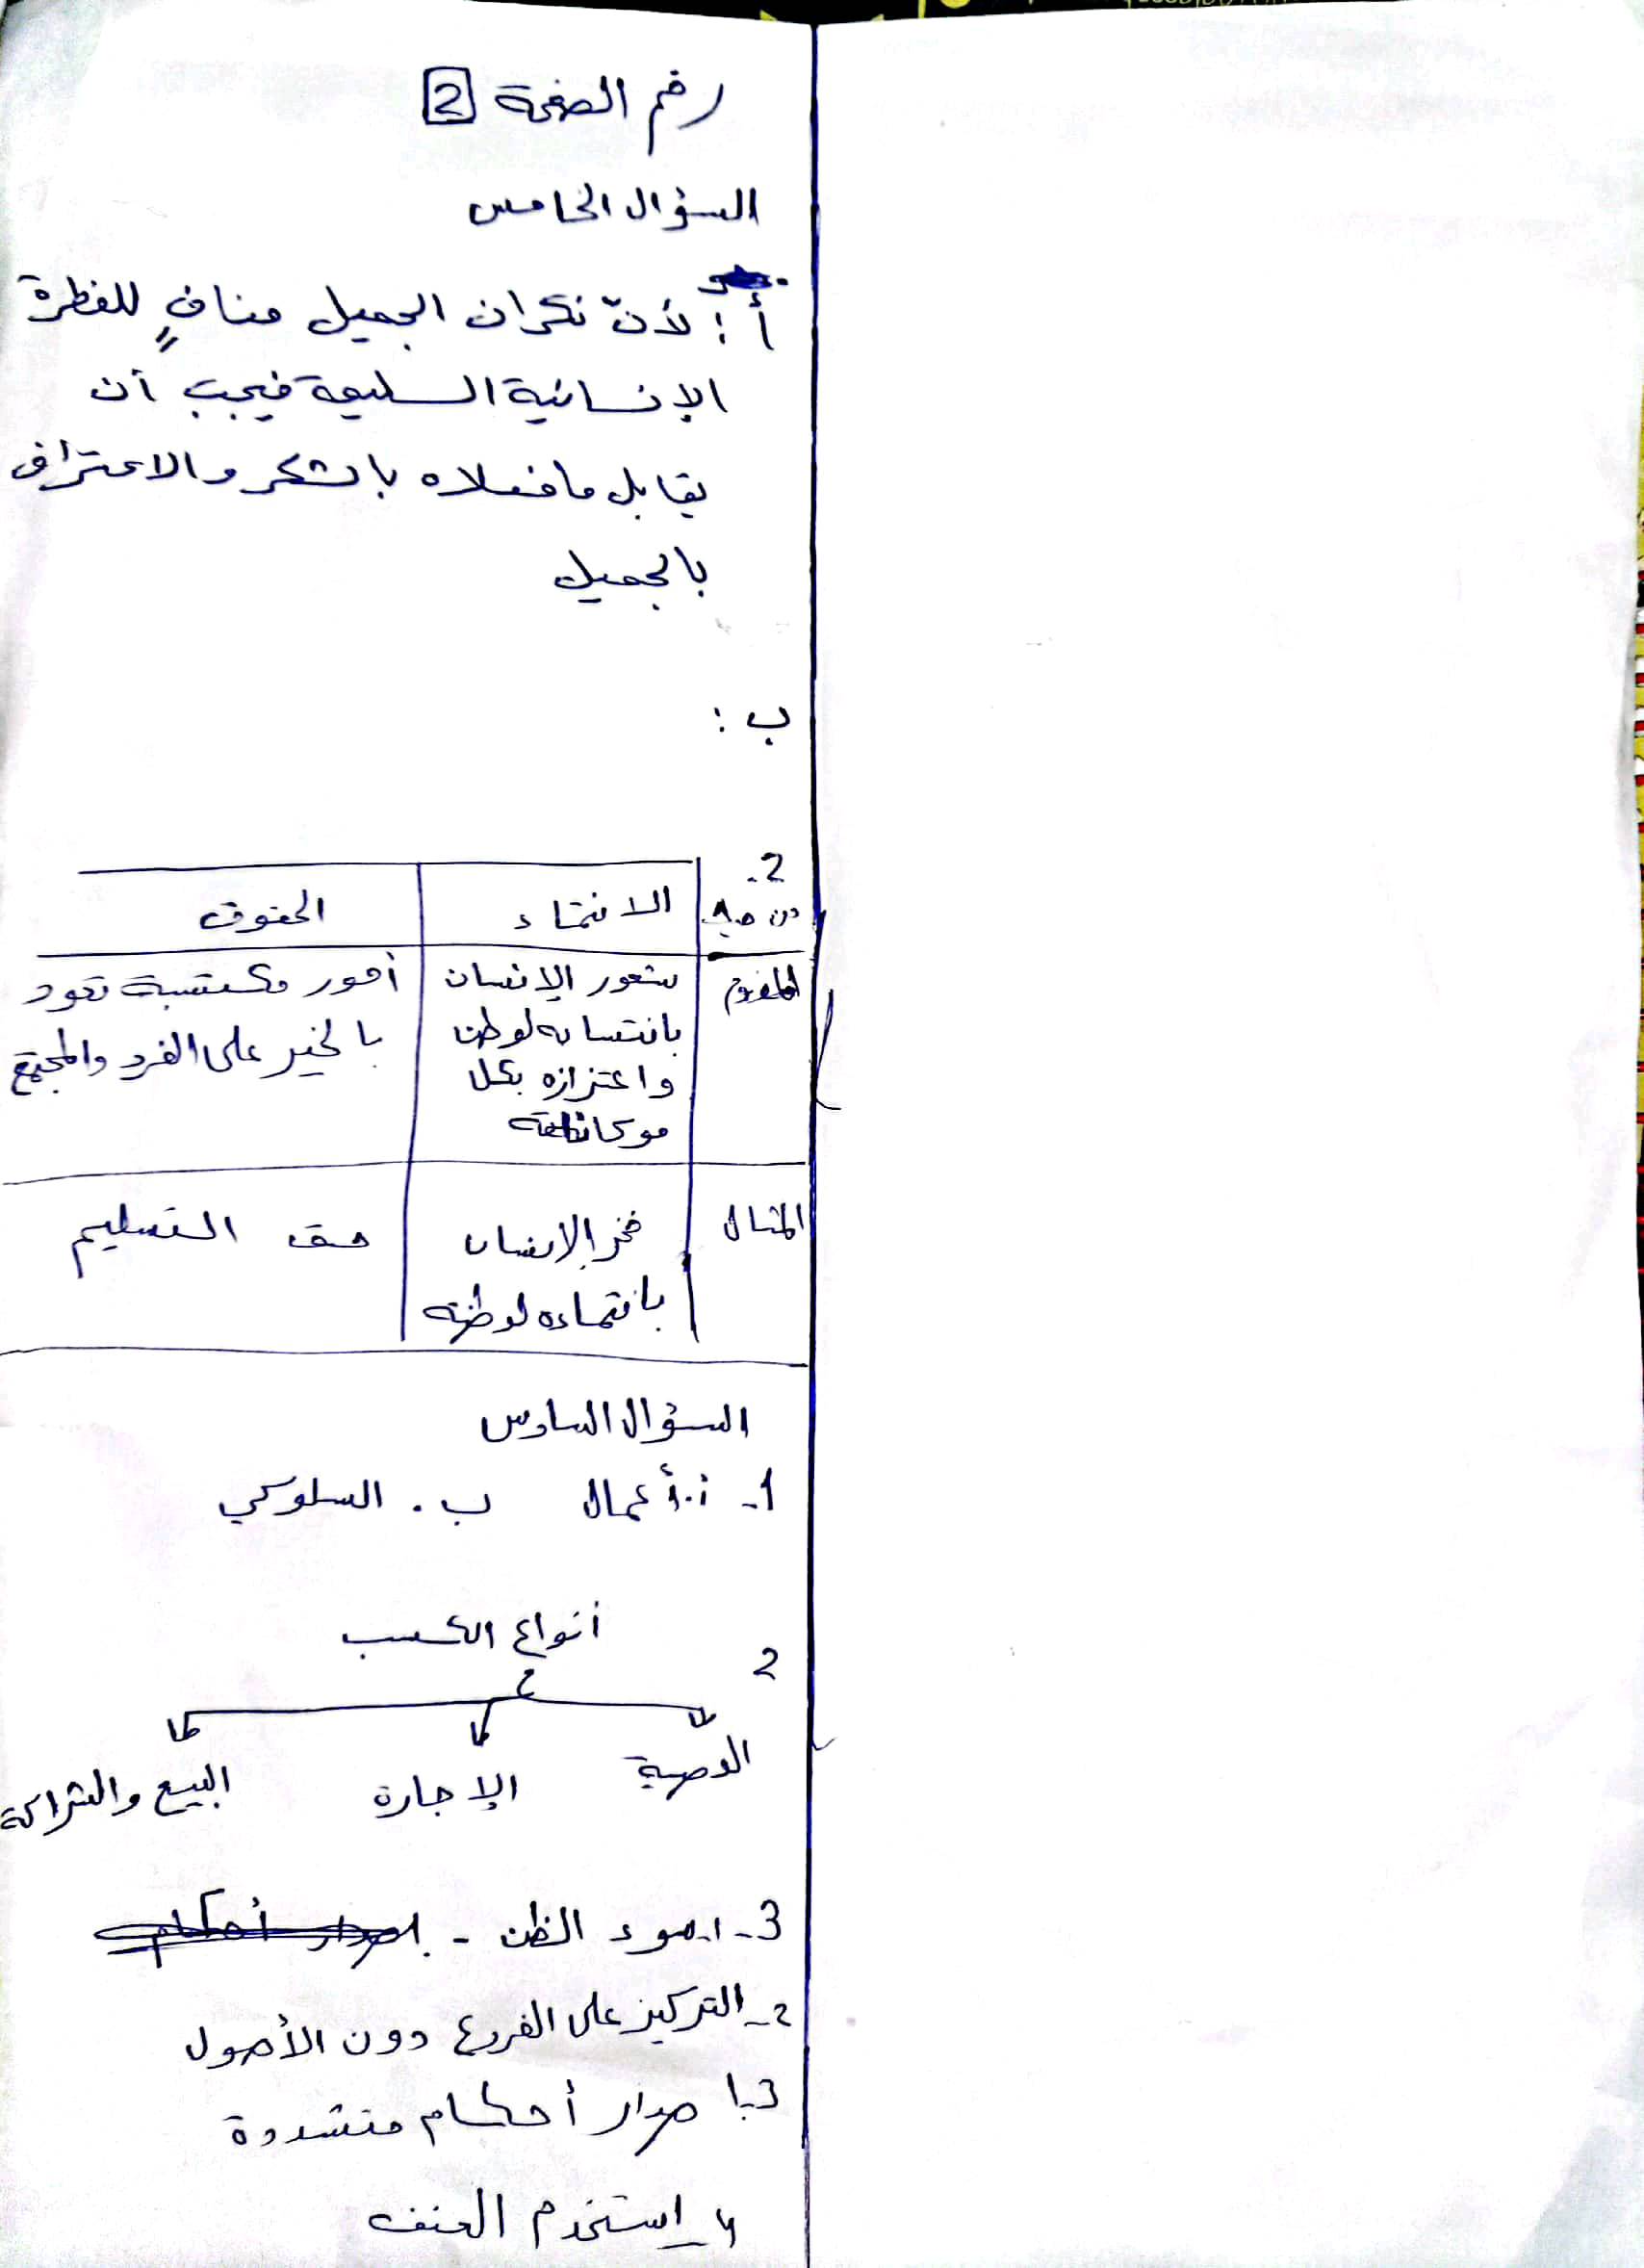 رقم الصفحة 2
السؤال الخامس
أ: لأنّ نكران الجميل منافٍ للفطرة
الإنسانية السليمة فيجب أن
يقابل ما فعلاه بالشكر والاعتراف
بالجميل
ب:
2.
من حيث الانتماء الحقوق
المفهوم شعور الإنسان أمور مكتسبة تعود
بانتسابه لوطن بالخير على الفرد والمجتمع
واعتزازه بكل
المثال فخر الإنسان حق التسليم
بانتماءه لوطنه
السؤال السادس
1- أ. أعمال ب. السلوكي
أنواع الكسب
2
الوصية الإجارة البيع والشراكة
3- 1. سوء الظن -
2- التركيز على الفروع دون الأصول
3. إصدار أحكام متشددة
4- استخدم العنف